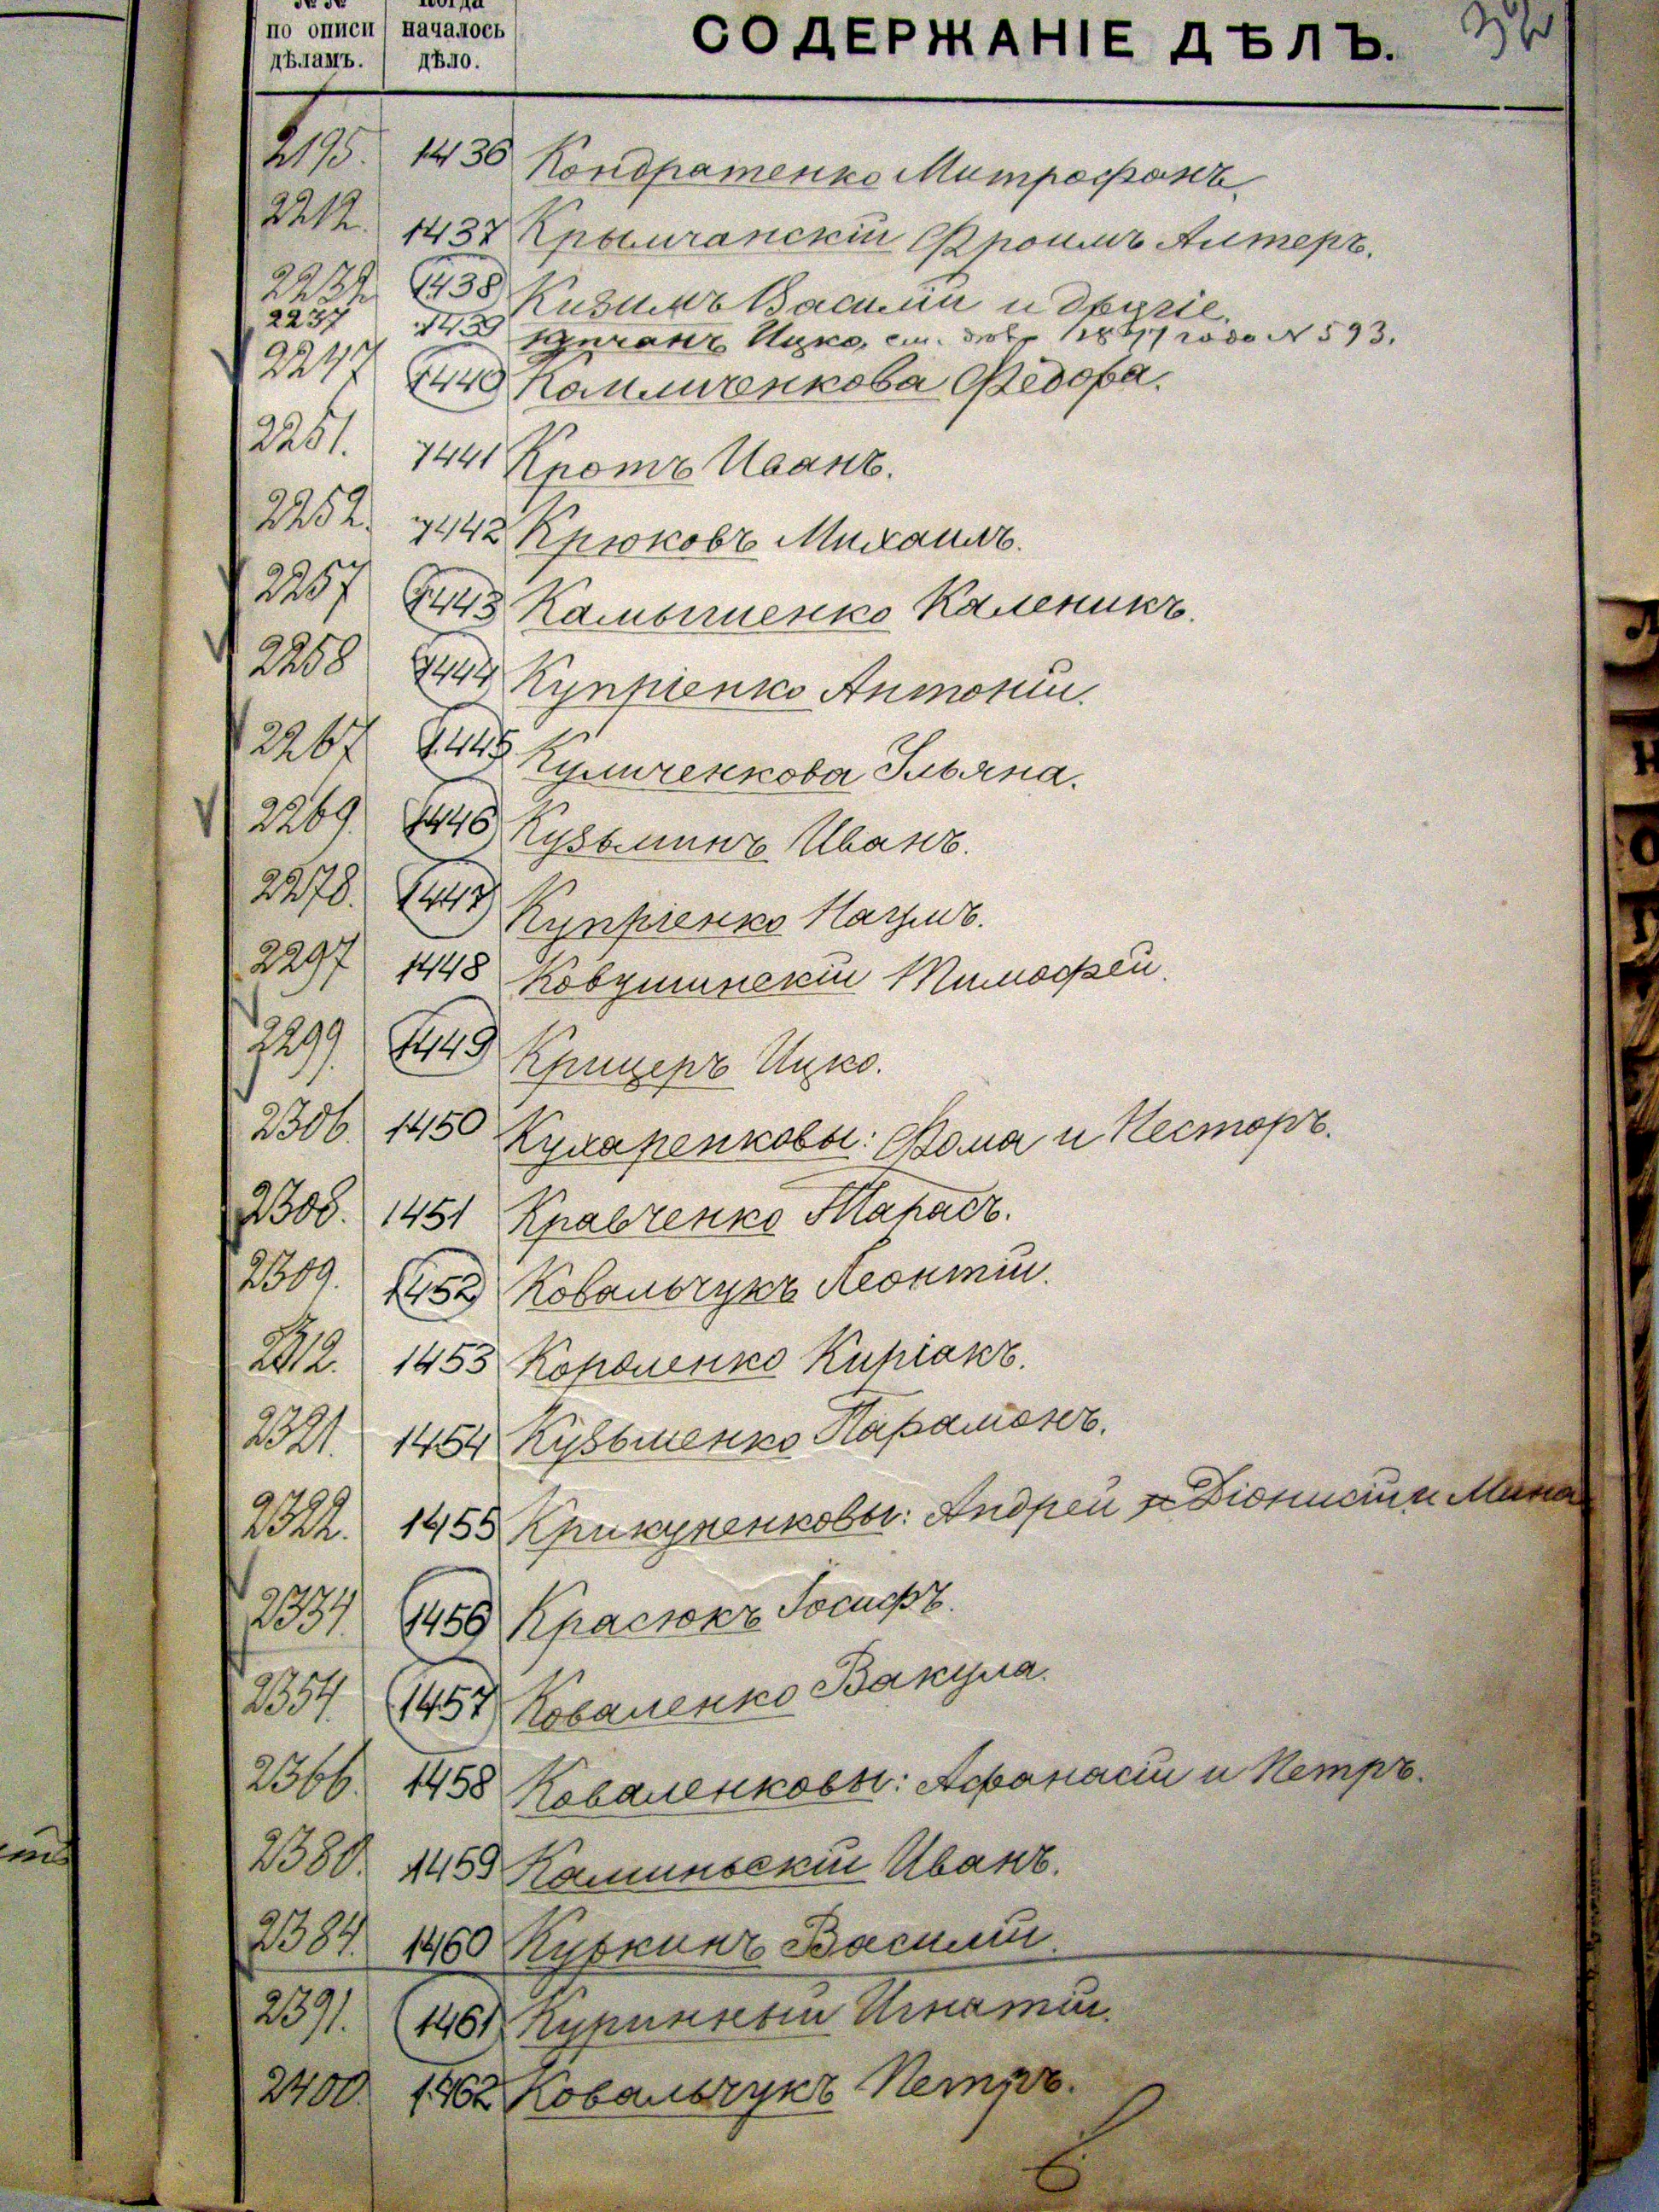 № № Когда
по описи началось СОДЕРЖАНІЕ ДѢЛЪ. 32
дѣламъ. дѣло.
2195. 1436 Кондратенко Митрофанъ.
2212. 1437 Крымчанскій Фроимъ Алтеръ.
2232 1438 Кизимъ Василій и другіе.
2237 1439 Ицко, см. года N 593.
2247 1440 Федора.
2251. 1441 Кротъ Иванъ.
2252. 1442 Крюковъ Михаилъ.
2257 1443 Камышенко Каленикъ.
2258 1444 Купріенко Антоній.
2267 1445 Куличенкова Ульяна.
2269. 1446 Кузьминъ Иванъ.
2278. 1447 Купріенко Наумъ.
2297 1448 Ковушинскій Тимофей.
2299. 1449 Крицеръ Ицко.
2306. 1450 Кухаренковы: Фома и Несторъ.
2308. 1451 Кравченко Тарасъ.
2309. 1452 Ковальчукъ Леонтій.
2312. 1453 Короленко Киріакъ.
2321. 1454 Кузьменко Парамонъ.
2322. 1455 Крикуненковы: Андрей Діонисій и Мина
2334. 1456 Красюкъ Іосифъ.
2354. 1457 Коваленко Вакула.
2366. 1458 Коваленковы: Афанасій и Петръ.
2380. 1459 Каминьскій Иванъ.
2384. 1460 Куркинъ Василій.
2391. 1461 Куринный Игнатій.
2400. 1462 Ковальчукъ Петръ.